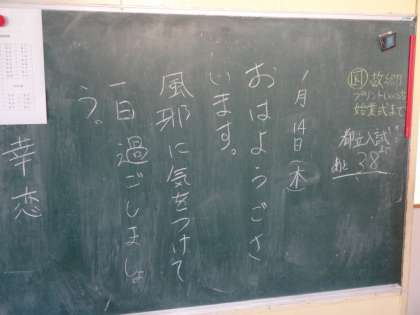 国
プリント
始業式まで
都立入試
あと 38
1月14日(木)
おはようござ
います。
風邪に気をつけて
一日過ごしましょ
う。
幸恋